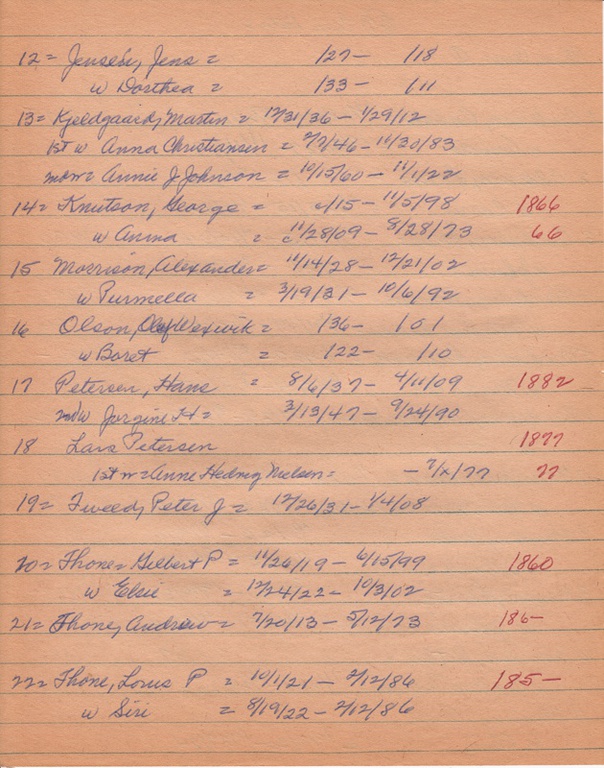 12 = Jensen, Jens = /27 - /18
w Dorthea = /33 - /11
13 = Kjeldgaard, Martin = 12/31/36 - 1/29/12
1st w Anna Christiansen = 2/2/46 - 11/20/83
= Annie J. Johnson = 10/15/60 - 11/1/22
14 = Knutson, George = c/15 - 11/5/98 1866
w Anna = c 11/28/09 - 8/28/73 66
15 Morrison, Alexander = 11/14/28 - 12/21/02
w Purmella = 3/19/31 - 10/6/92
16 Olson, Olaf = /36 - /01
w Boret = /22 - /10
17 Petersen, Hans = 8/6/37 - 4/11/09 1882
2nd w Jorgine H = 3/13/47 - 9/24/90
18 Lars Petersen 1877
1st w = Anne Hedvig Nielsen = - 7/x/77 77
19 = Tweed, Peter J = 12/26/31 - 1/4/08
20 = Thone = Gilbert P = 11/26/19 - 6/15/99 1860
w Elsie = 12/24/22 - 10/3/02
21 = Thone, Andrew = 7/20/13 - 5/12/73 186-
22 = Thone, Lorus P = 10/1/21 - 2/12/86 185-
w Siri = 8/19/22 - 2/12/86